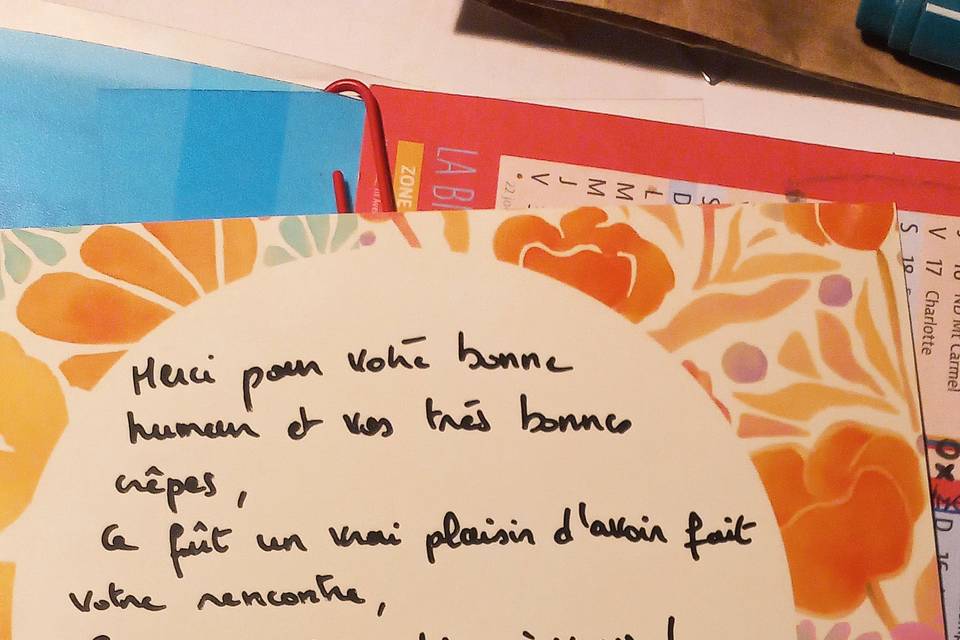 LA BI
ZONE
22 jo
V
J
M
M
L
D
S
V
S 18
V 17 Charlotte
16 ND Mt Carmel
D
Merci pour votre bonne
humeur et vos très bonnes
crêpes,
Ce fût un vrai plaisir d'avoir fait
votre rencontre,